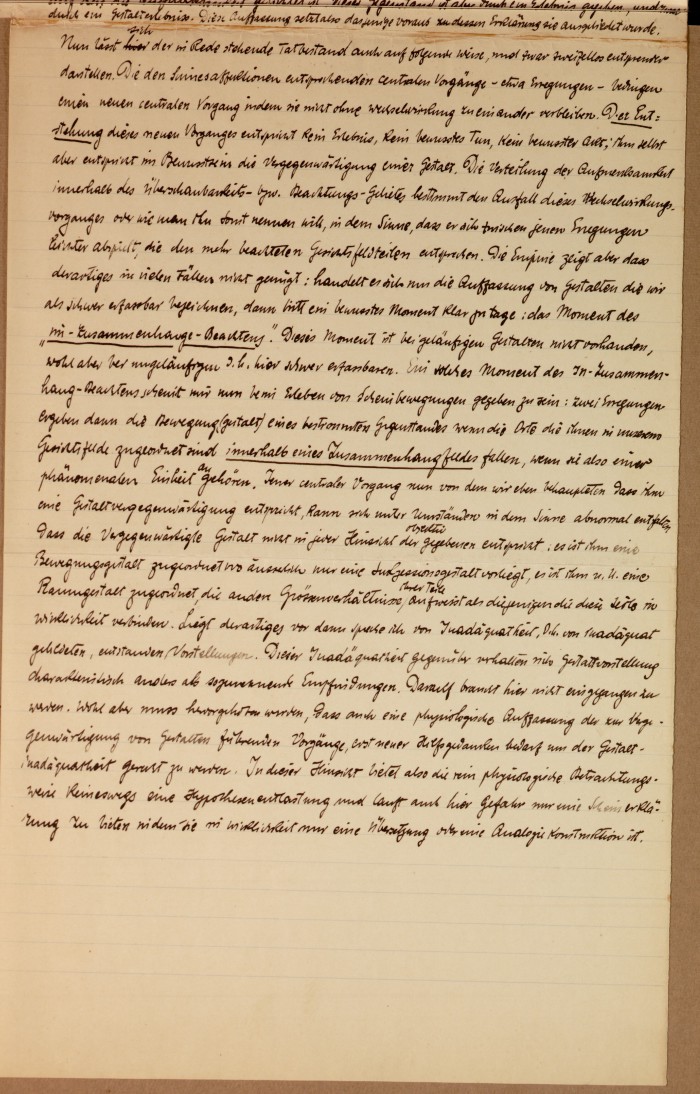 durch ein Gestalterlebnis. Diese Auffassung setzt also dasjenige voraus zu dessen Erklärung sie ausgebildet wurde.
Nun lässt sich der in Rede stehende Tatbestand auch auf folgende Weise, und zwar zweifellos entsprechender
darstellen. Die den Sinnesaffektionen entsprechenden centralen Vorgänge – etwa Erregungen – bedingen
einen neuen centralen Vorgang indem sie nicht ohne Wechselwirkung zu einander verbleiben. Der Ent=
stehung dieses neuen Vorganges entspricht kein Erlebnis, kein bewusstes Tun, kein bewusster Akt; ihm selbst
aber entspricht im Bewusstsein die Vergegenwärtigung einer Gestalt. Die Verteilung der Aufmerksamkeit
innerhalb des Überschaubarkeits- bzw. Beachtungs-Gebietes bestimmt den Ausfall dieses Wechselwirkungs-
vorganges oder wie man ihn sonst nennen will, in dem Sinne, dass er sich zwischen jenen Erregungen
leichter abspielt, die den mehr beachteten Gesichtsfeldteilen entsprechen. Die Empirie zeigt aber dass
derartiges in vielen Fällen nicht genügt: handelt es sich um die Auffassung von Gestalten die wir
als schwer erfassbar bezeichnen, dann tritt ein bewusstes Moment klar zu tage: das Moment des
"im-Zusammenhange-Beachtens". Dieses Moment ist bei geläufigen Gestalten nicht vorhanden,
wohl aber bei ungeläufigen d.h. hier schwer erfassbaren. Ein solches Moment des Im-Zusammen-
hang-Beachtens scheint mir nun beim Erleben von Scheinbewegungen gegeben zu sein: zwei Erregungen
ergeben dann die Bewegung(gestalt) eines bestimmten Gegenstandes wenn die Orte die ihnen in unserem
Gesichtsfelde zugeordnet sind innerhalb eines Zusammenhangfeldes fallen, wenn sie also einer
phänomenalen Einheit angehören. Jener centraler Vorgang nun von dem wir eben behaupteten dass ihm
eine Gestaltvergegenwärtigung entspricht, kann sich unter Umständen in dem Sinne abnormal entfalten,
dass die Vergegenwärtigte Gestalt nicht in jeder Hinsicht der objektiv gegebenen entspricht; es ist ihm eine
Bewegungsgestalt zugeordnet wo äusserlich nur eine Successionsgestalt vorliegt, es ist ihm u. U. eine
Raumgestalt zugeordnet, die andere Grössenverhältnisse ihrer Teile aufweist als diejenigen die diese Teile in
Wirklichkeit verbinden. Liegt derartiges vor dann spreche ich von Inadäquatheit, d.h. von inadäquat
gebildeten, entstanden, Vorstellungen. Dieser Inadäquatheit gegenüber verhalten sich Gestaltvorstellung
charakteristisch anders als sogenannte Empfindungen. Darauf braucht hier nicht eingegangen zu
werden. Wohl aber muss hervorgehoben werden, dass auch eine physiologische Auffassung der zur Verge-
genwärtigung von Gestalten führenden Vorgänge, erst neuer Hilfsgedanken bedarf um der Gestalt-
inadäquatheit gerecht zu werden. In dieser Hinsicht bietet also die rein physiologische Betrachtungs-
weise keineswegs eine Hypothesenentlastung und läuft auch hier Gefahr nur eine Scheinerklä-
rung zu bieten indem sie in Wirklichkeit nur eine Übersetzung oder eine Analogie Konstruktion ist.